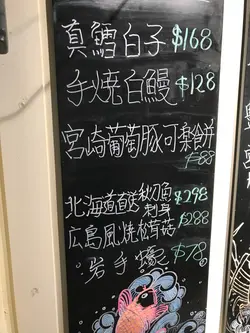 真鱈白子 $168
手燒白鰻 $128
宮崎葡萄豚可樂餅
$88
北海道直送秋刀魚 $298
刺身
広島風燒松茸菇 $288
岩手蠔 $78